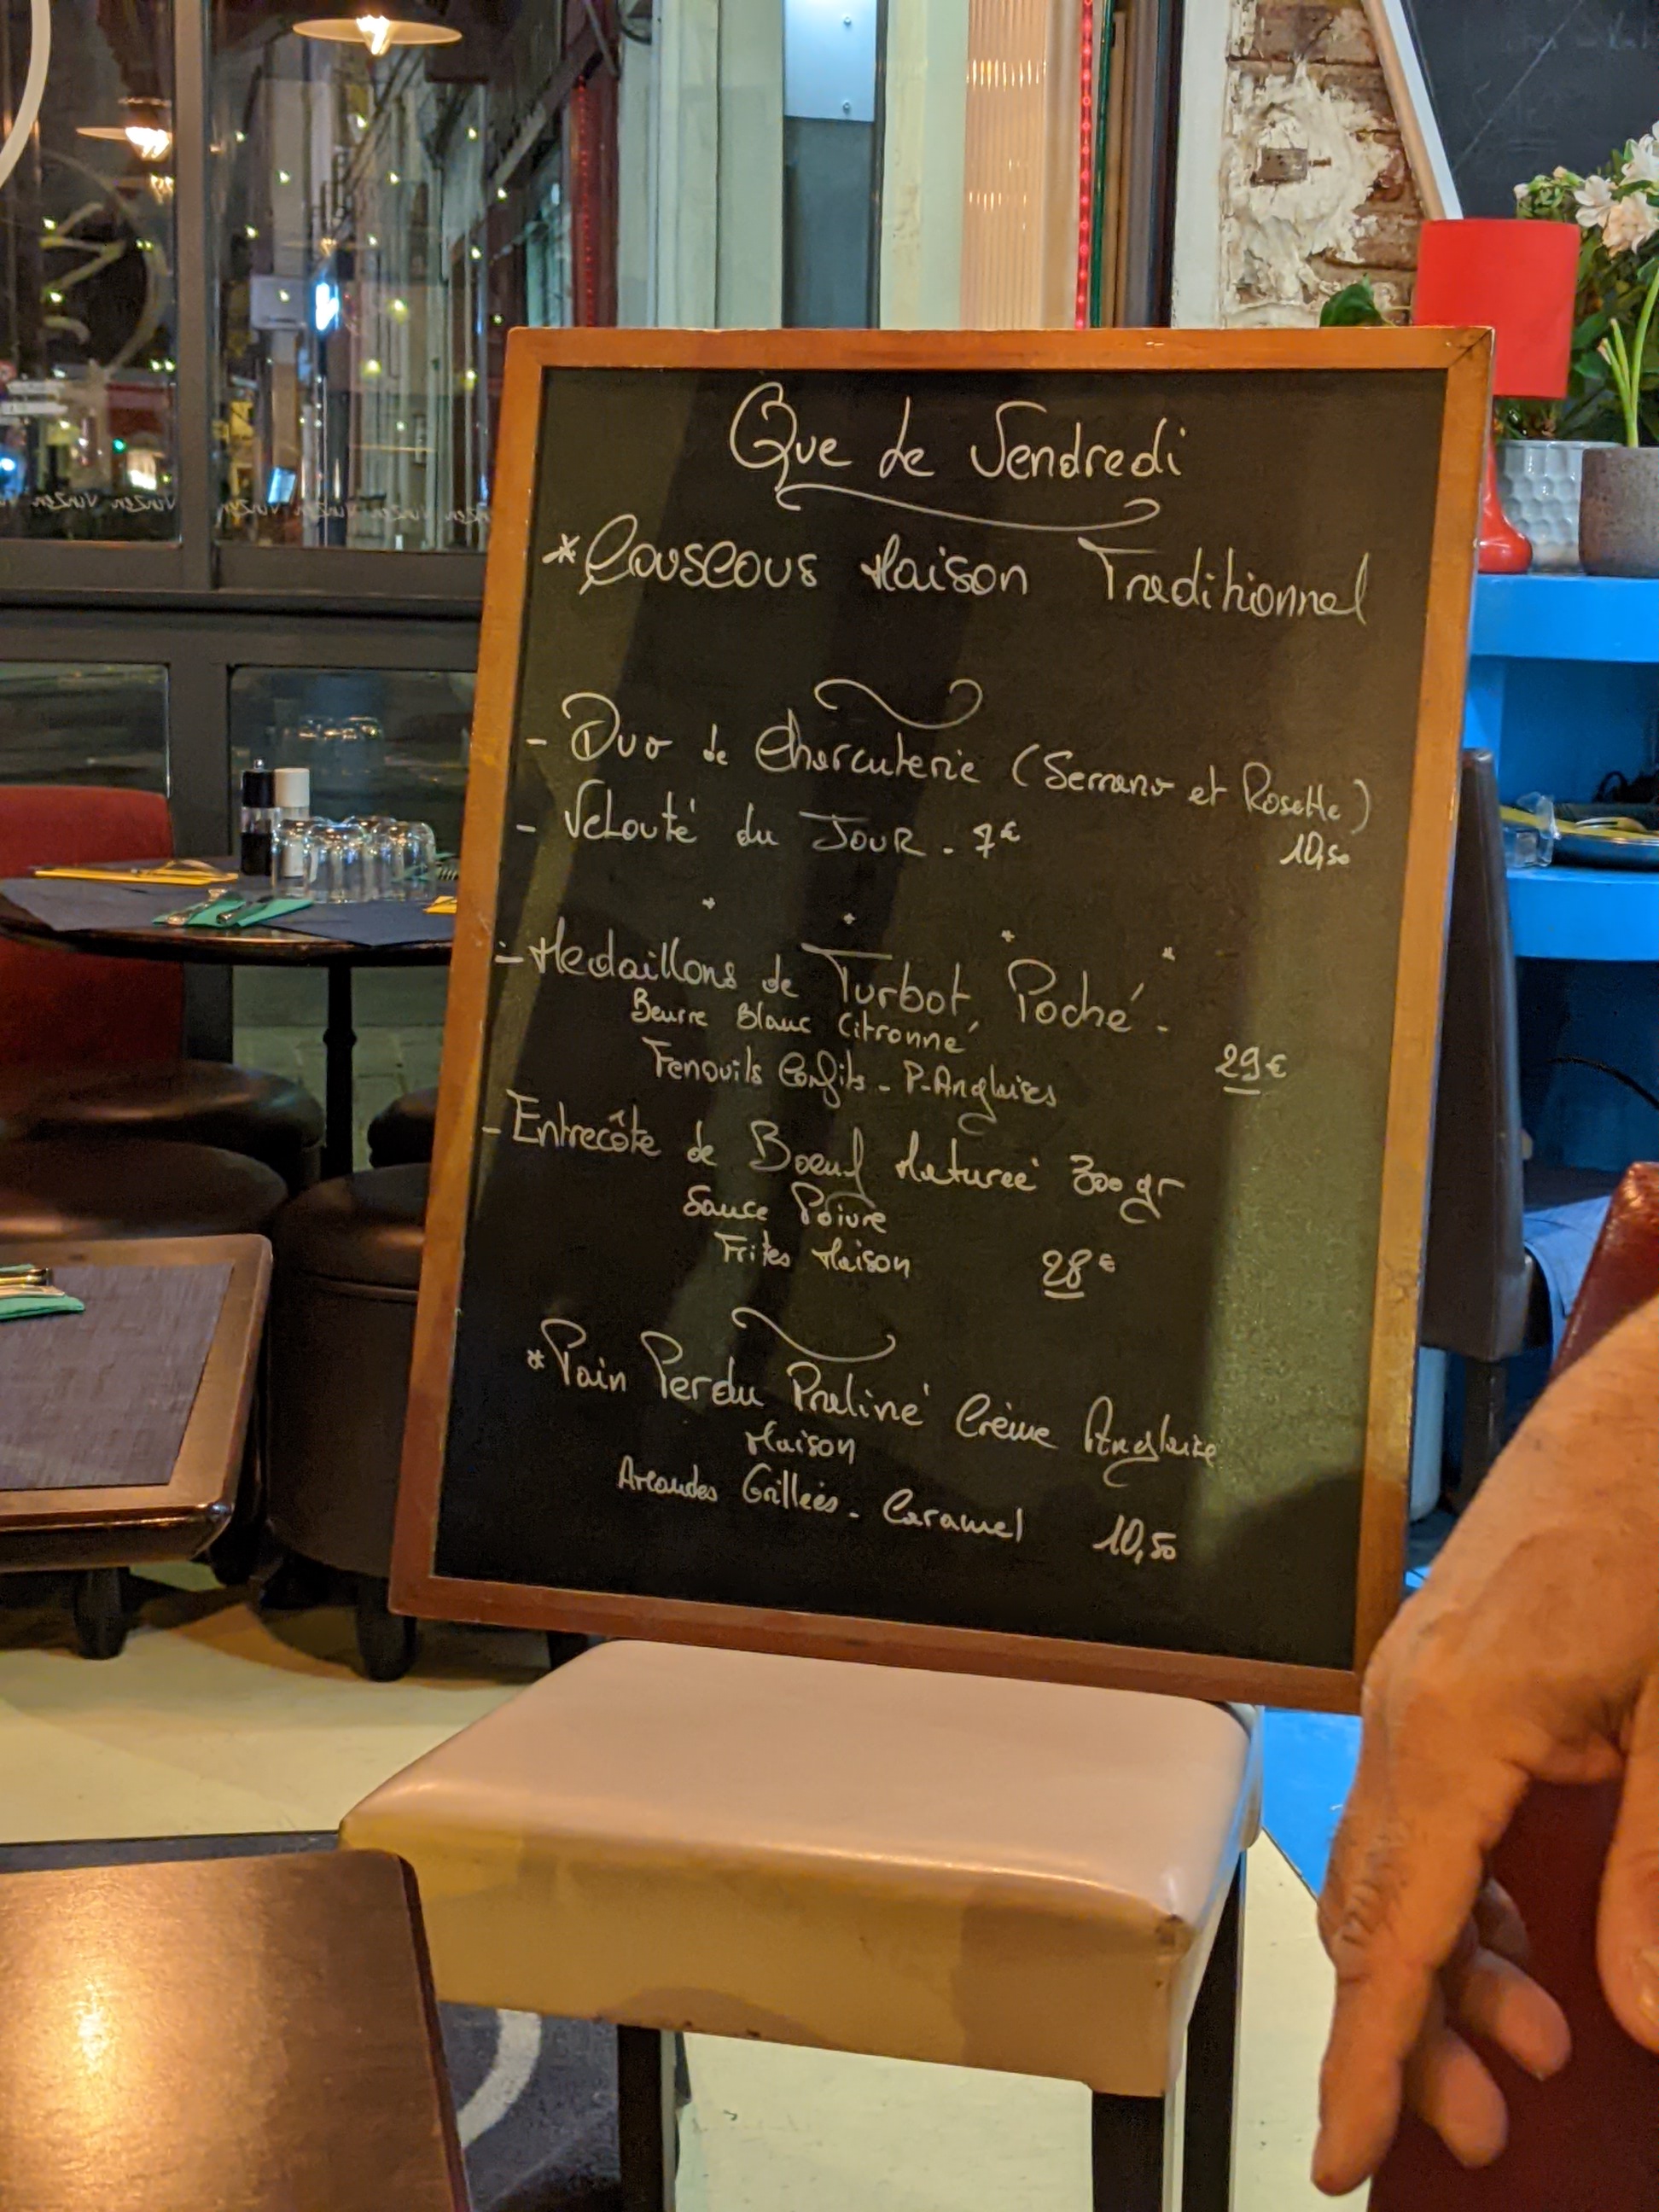 Que le Vendredi
* Couscous Maison Traditionnel
- Duo de Charcuterie (Serrano et Rosette)
10,50
- Velouté du Jour - 7€
- Medaillons de Turbot, Poché -
Beurre Blanc Citronné
Fenouils Confits - P. Anglaises
29€
- Entrecôte de Boeuf Maturée 300 gr
Sauce Poivre
Frites Maison 28€
* Pain Perdu Praliné Crème Anglaise
Maison
Amandes Grillées - Caramel 10,50
VinZen VinZen VinZen VinZen VinZen VinZen